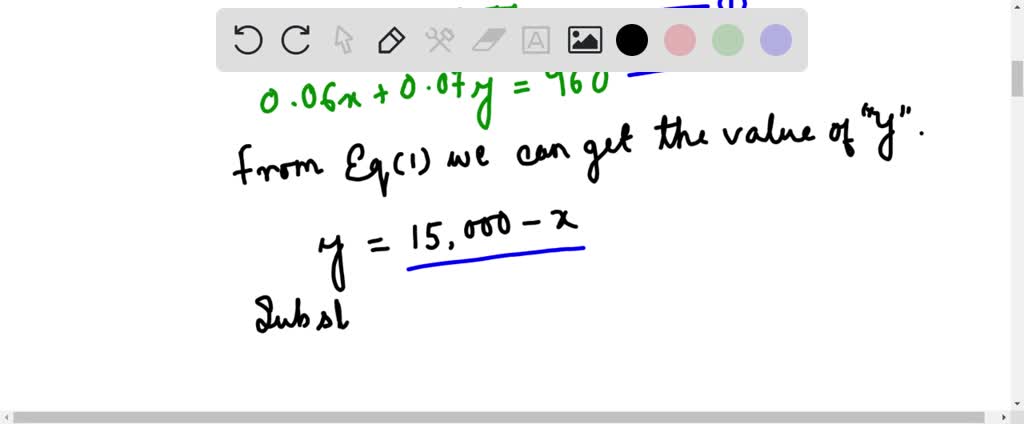 0.06x + 0.07y = 960
From Eq(1) we can get the value of "y".
y = 15,000 - x
Subst